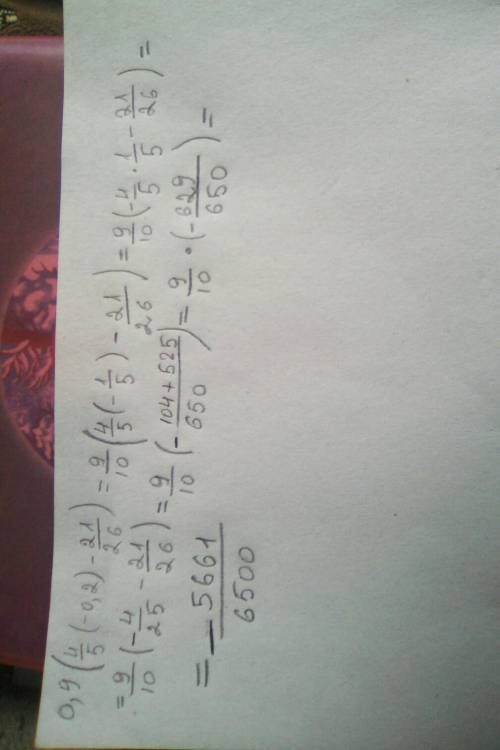 0,9(4/5(-0,2)-21/26)=9/10(4/5(-1/5)-21/26)=9/10(-4/5·1/5-21/26)=
=9/10(-4/25-21/26)=9/10(-104+525/650)=9/10·(-629/650)=
=-5661/6500